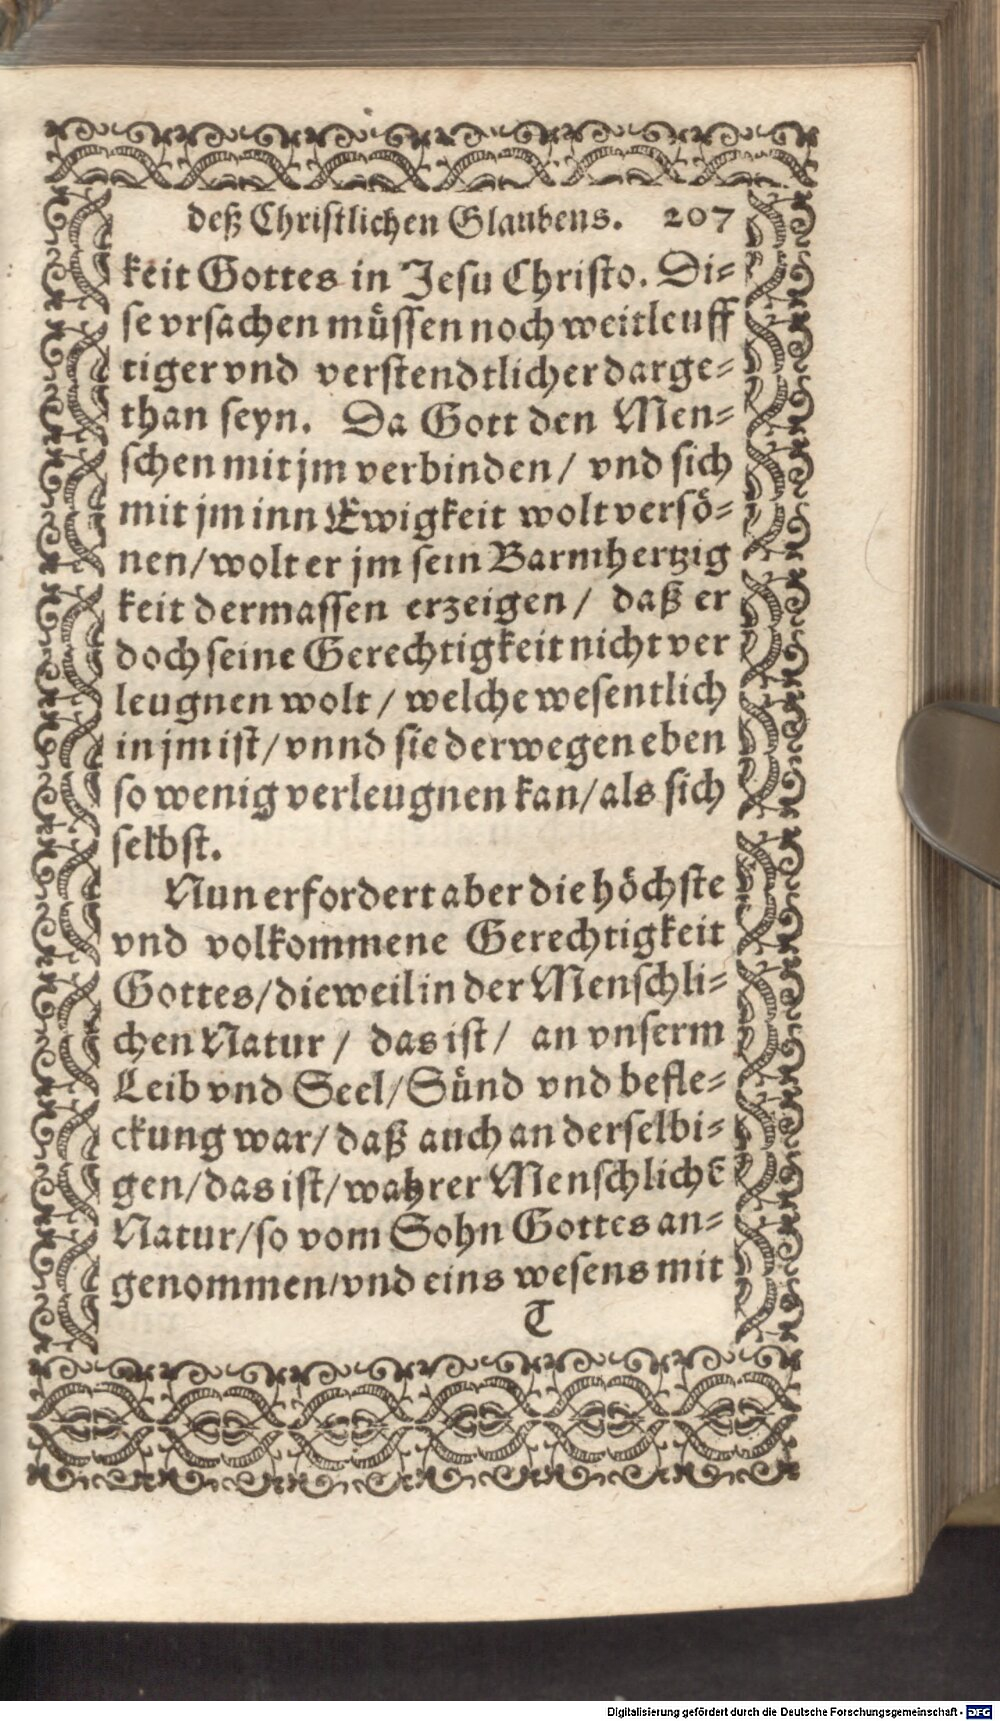 deß Christlichen Glaubens. 207
keit Gottes in Jesu Christo. Di-
se vrsachen müssen noch weitleuff
tiger vnd verstendtlicher darge-
than seyn. Da Gott den Men-
schen mit jm verbinden / vnd sich
mit jm inn Ewigkeit wolt versö-
nen / wolt er jm sein Barmhertzig
keit dermassen erzeigen / daß er
doch seine Gerechtigkeit nicht ver
leugnen wolt / welche wesentlich
in jm ist / vnnd sie derwegen eben
so wenig verleugnen kan / als sich
selbst.
Nun erfordert aber die höchste
vnd volkommene Gerechtigkeit
Gottes / dieweil in der Menschli-
chen Natur / das ist / an vnserm
Leib vnd Seel / Sünd vnd befle-
ckung war / daß auch an derselbi-
gen / das ist / wahrer Menschlichẽ
Natur / so vom Sohn Gottes an-
genommen / vnd eins wesens mit
T
Digitalisierung gefördert durch die Deutsche Forschungsgemeinschaft - DFG